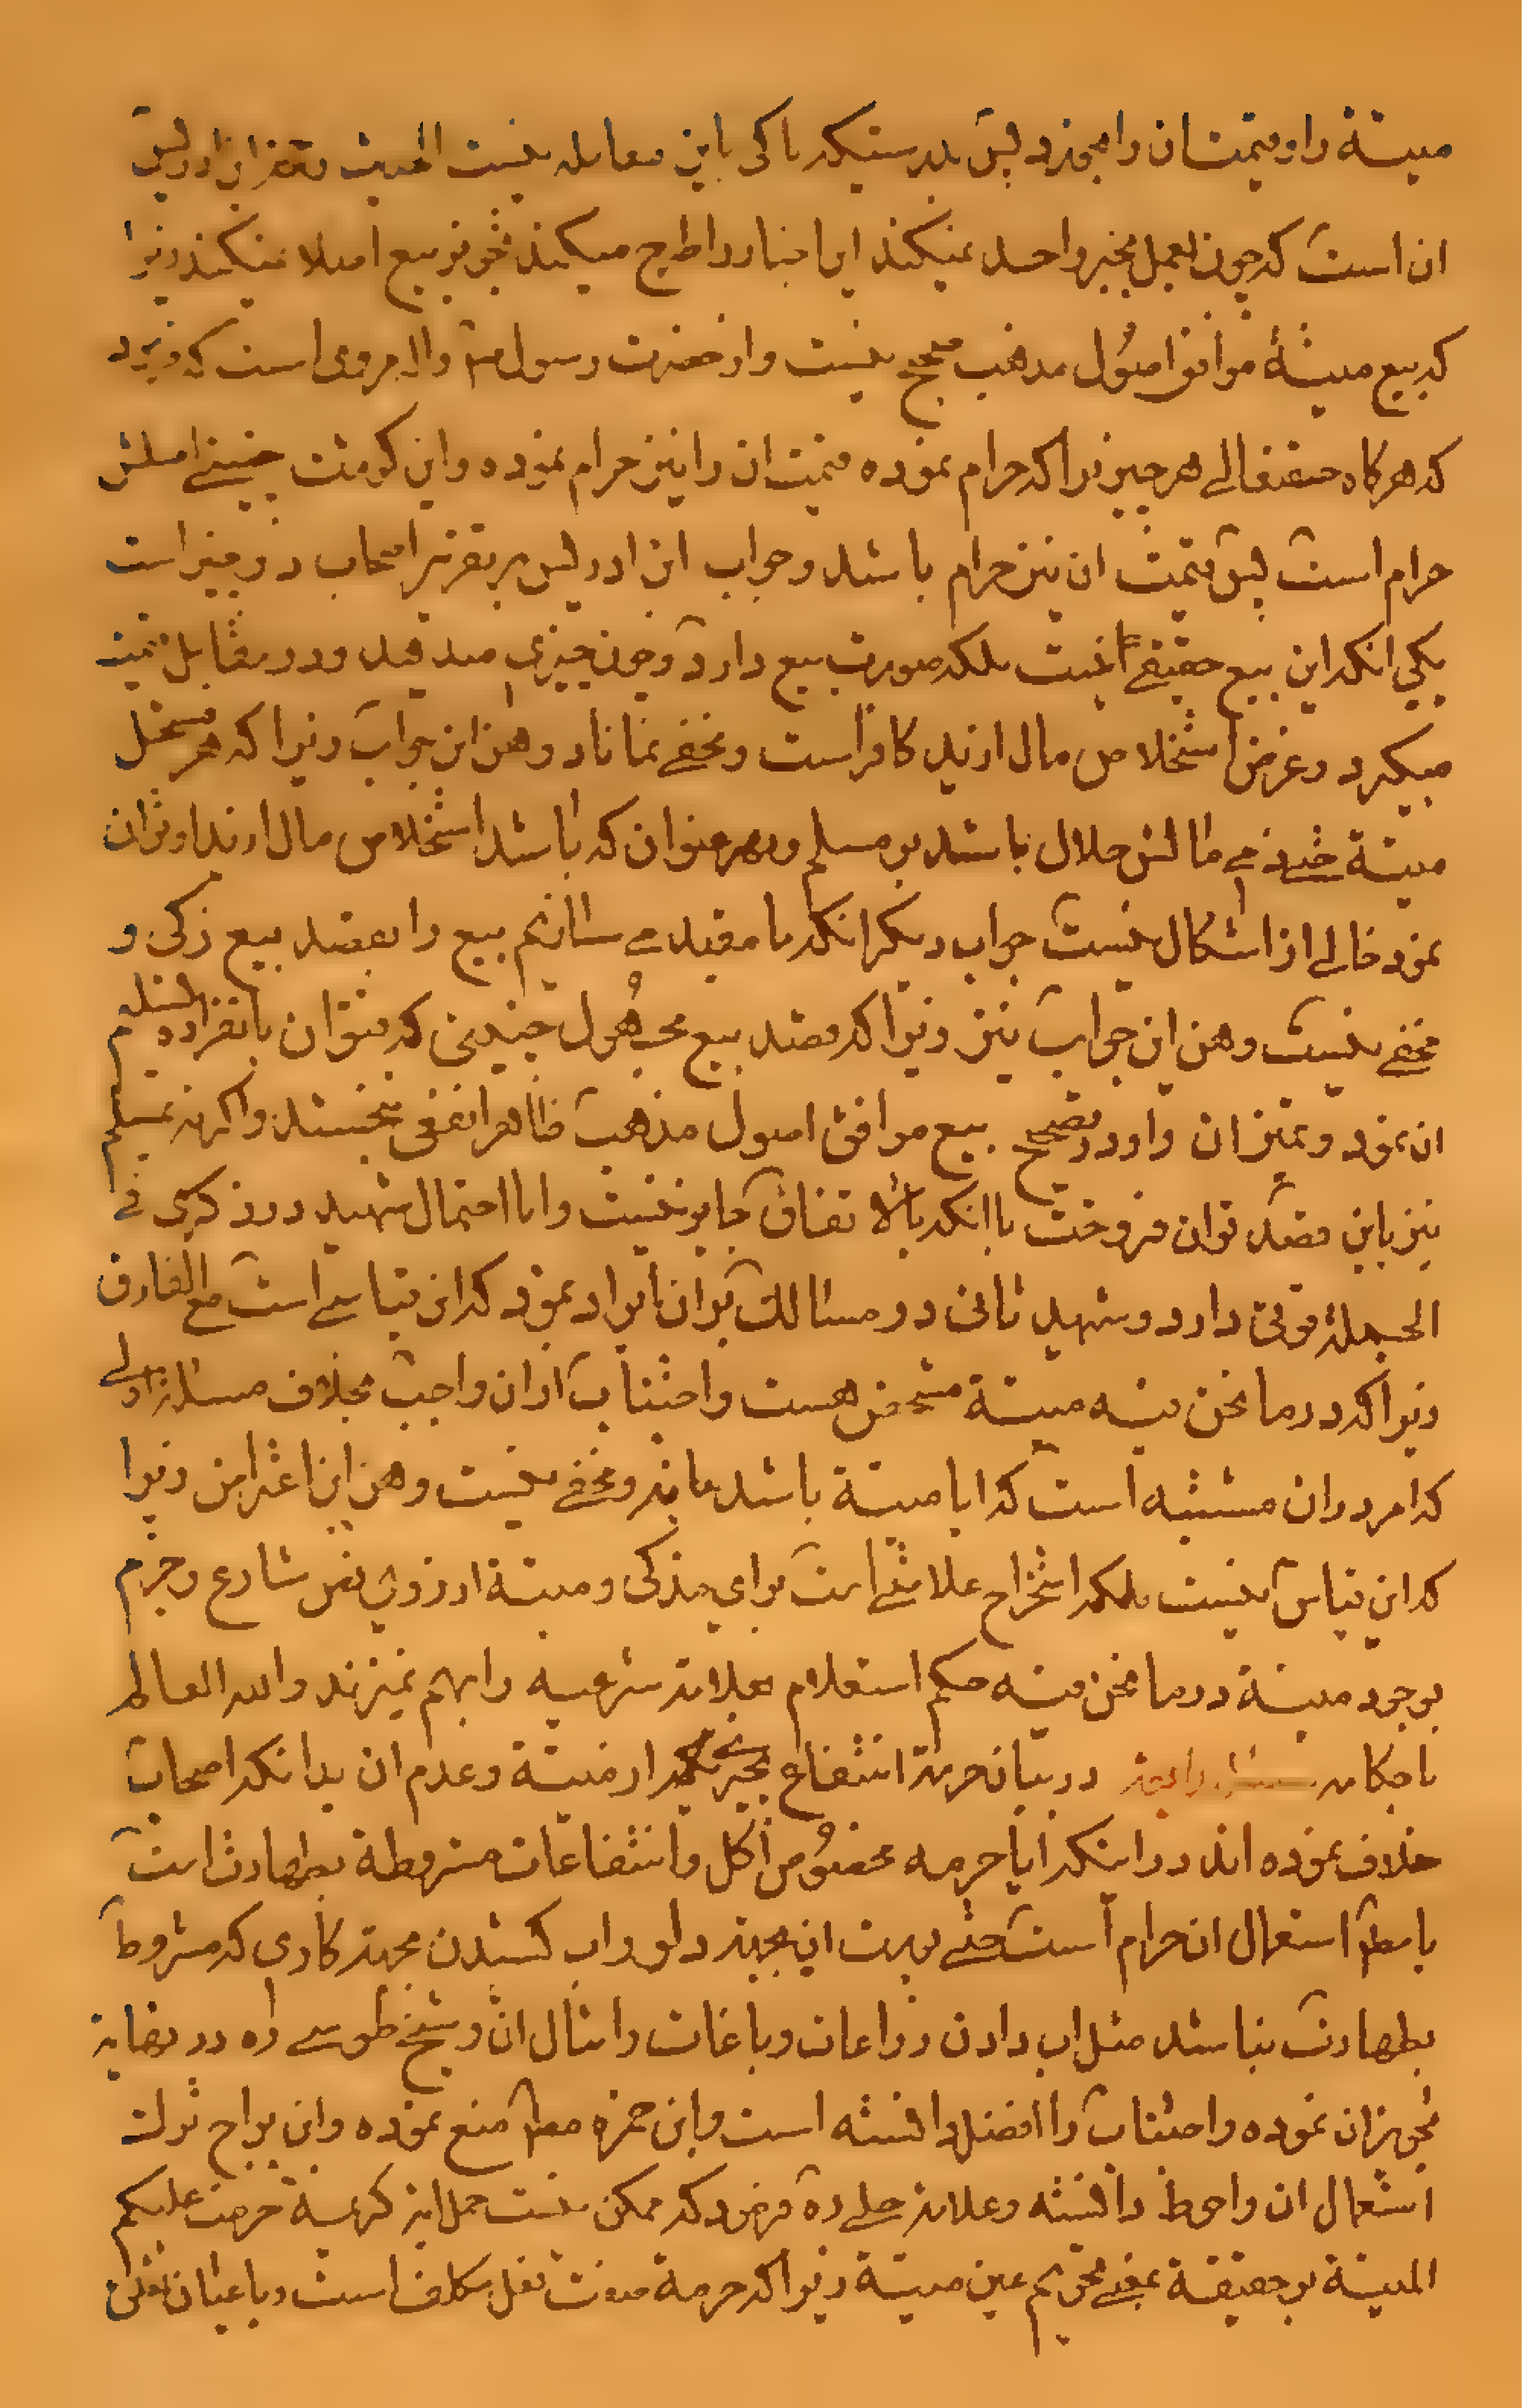 میتة را و قیمتشان را میخورد پس بدرستیکه باکی باین معامله نیست الحدیث و تقریر ابن ادریس
ان است که چون عمل بخبر واحد نمیکند این اخبار را طرح میکند تجویز بیع اصلا نمیکند زیرا
که بیع میتة موافق اصول مذهب صحیح نیست و از حضرت رسول ص و اله مروی است که فرمود
که هرگاه حقتعالی هر چیزیرا که حرام نموده قیمت ان را نیز حرام نموده و این گوشت چنینی اصلش
حرام است پس قیمت ان نیز حرام باشد و جواب ابن ادریس بر تقریر اصحاب دو چیز است
یکی انکه این بیع حقیقی نیست بلکه صورت بیع دارد و چون چیزی میدهد و در مقابل قیمت
میگیرد و غرض استخلاص مال از ید کافر است و مخفی نماناد وهن این جواب زیرا که هر مستحل
میتة مالش حلال باشد بر مسلم و بهر عنوان که باشد استخلاص مال از ید او توان
نمود خالی از اشکال نیست جواب دیگر انکه ما مقید می سازیم بیع را بقصد بیع زکی و
مخفی نیست وهن این جواب نیز زیرا که قصد بیع مجهول چنینی که نتوان بانفراده تسلیم
ان نمود و تمیز ان داد در تصحیح بیع موافق اصول مذهب ظاهرا نفعی نبخشد و اگر نه بمسلم
نیز باین قصد توان فروخت با انکه بالاتفاق جایز نیست و اما احتمال شهید در ذکری فی
الجملة قوتی دارد و شهید ثانی در مسالک بر ان ایراد نمود که این قیاسی است مع الفارق
زیرا که در ما نحن فیه میتة مشخص هست و اجتناب از ان واجب بخلاف مسئله اولی
که امر در ان مشتبه است که ایا میتة باشد یا نه و مخفی نیست وهن این اعتراض زیرا
که این قیاس نیست بلکه استخراج علامتی است برای مذکی و میتة از روی نص شارع و جزم
بوجود میتة در ما نحن فیه حکم استعلام بعلامة شرعیه را بهم نمیزند والله العالم
باحکامه مسئله رابعه در بیان حرمة انتفاع بچیزیکه از میتة و عدم ان بدانکه اصحاب
خلاف نموده اند در اینکه ایا حرمه مخصوص اکل و انتفاعات مشروطة بطهارت است
یا مطلقا استعمال ان حرام است حتی پوست ان بجهة دلو و اب کشیدن بجهة کاری که مشروط
بطهارت نباشد مثل اب دادن زراعات و باغات و امثال ان و شیخ طوسی ره در نهایة
تجویز ان نموده و اجتناب را افضل دانسته است و ابن حمزه مطلقا منع نموده و ابن براج ترک
استعمال ان را احوط دانسته و علامة حلی ره فرمود که ممکن نیست حمل ایة کریمة حرمت علیکم
المیتة بر حقیقة یعنی تحریم عین میتة زیرا که حرمة صفت فعل مکلف است و باعتبار تعلق